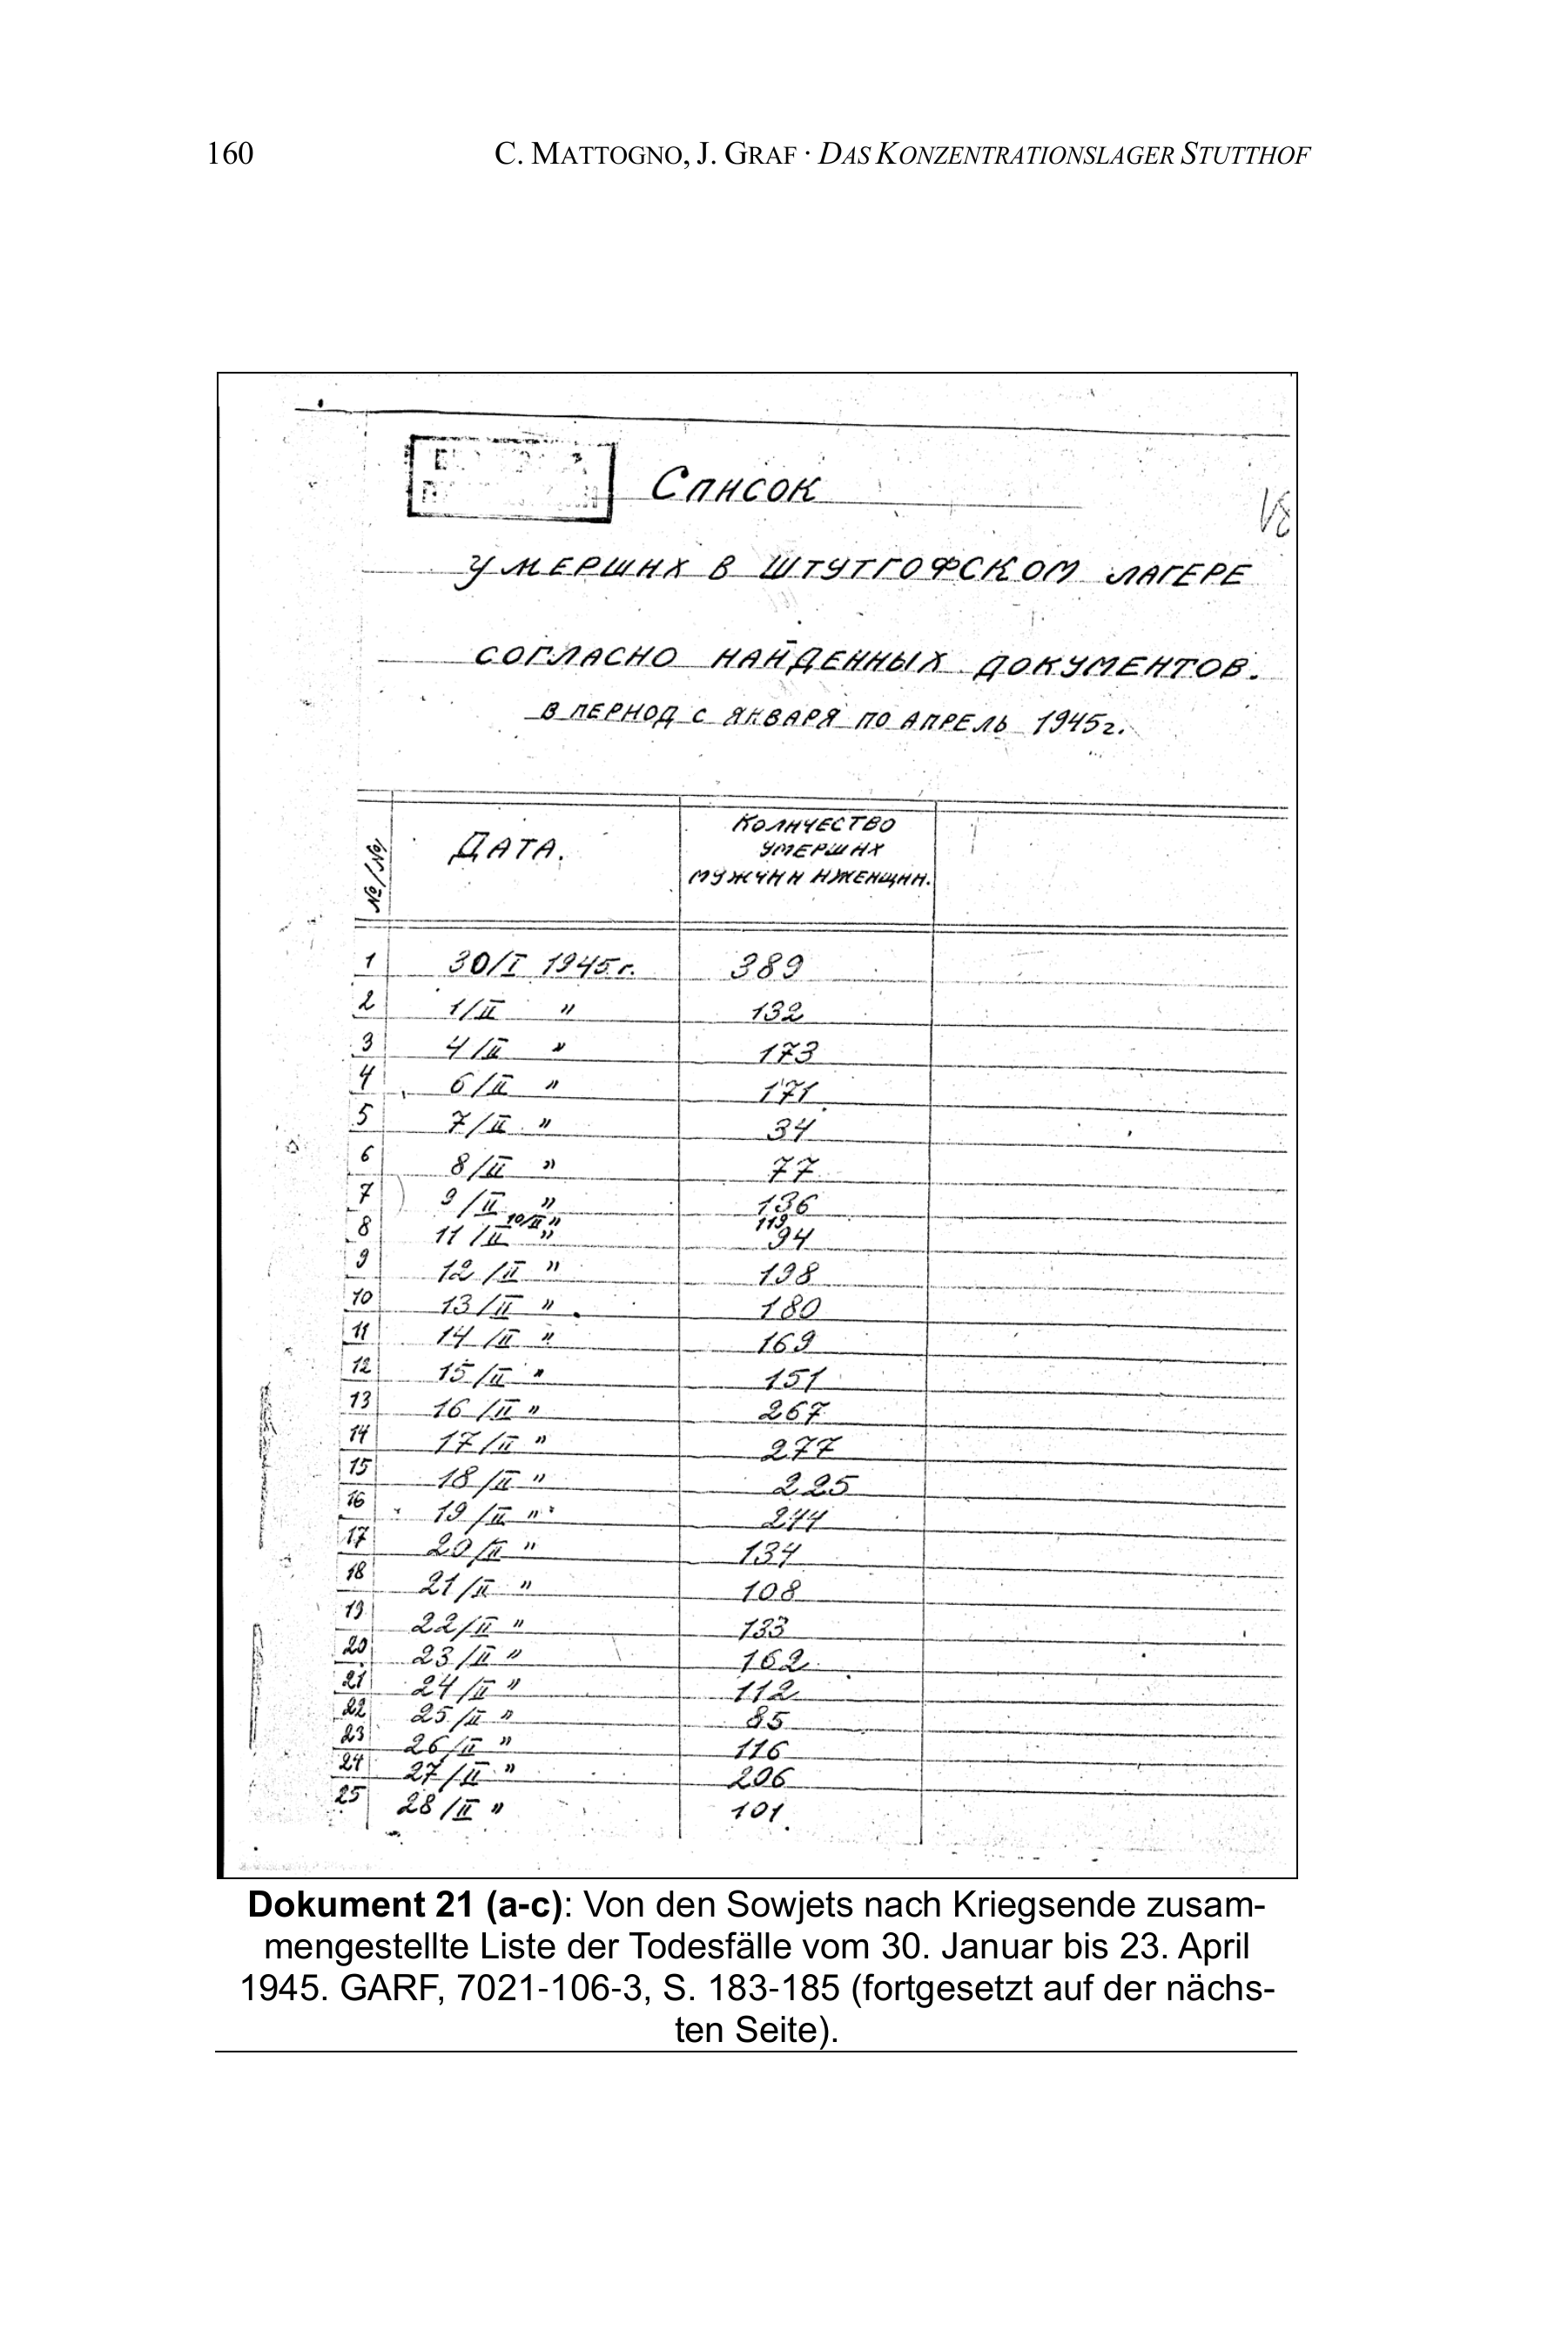 160 C. MATTOGNO, J. GRAF · DAS KONZENTRATIONSLAGER STUTTHOF
Список
УМЕРШИХ В ШТУТГОФСКОМ ЛАГЕРЕ
СОГЛАСНО НАЙДЕННЫХ ДОКУМЕНТОВ.
В ПЕРИОД С ЯНВАРЯ ПО АПРЕЛЬ 1945г.
№/№ ДАТА. КОЛИЧЕСТВО
УМЕРШИХ
МУЖЧИН И ЖЕНЩИН.
1 30/I 1945 г. 389
2 1/II " 132
3 4/II " 173
4 6/II " 171
5 7/II " 34
6 8/II " 77
7 9/II " 136
10/II " 119
8 11/II " 94
9 12/II " 198
10 13/II " 180
11 14/II " 169
12 15/II " 151
13 16/II " 267
14 17/II " 277
15 18/II " 225
16 19/II " 244
17 20/II " 134
18 21/II " 108
19 22/II " 133
20 23/II " 162
21 24/II " 112
22 25/II " 85
23 26/II " 116
24 27/II " 206
25 28/II " 101
Dokument 21 (a-c): Von den Sowjets nach Kriegsende zusam-
mengestellte Liste der Todesfälle vom 30. Januar bis 23. April
1945. GARF, 7021-106-3, S. 183-185 (fortgesetzt auf der nächs-
ten Seite).